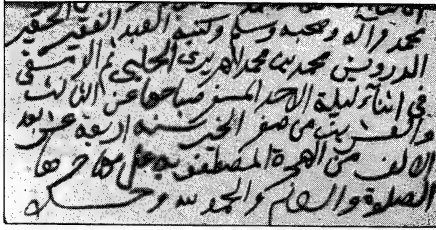 محمد وآله وصحبه وسلم وكتبه العبد الفقير الحقير
الدرويش محمد بن محمد الحلبي ثم الدمشقي
في اثناء ليلة الاحد المسفر صباحها عن الثالث
والعشرين من صفر الخير سنة اربعة عشر بعد
الالف من الهجرة المصطفويه على مهاجرها
الصلوة والسلام والحمد لله وحده